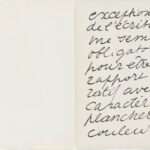 exception
de l'écrit
me sem
obligato
pour être
rapport
ratif ave
caractèr
planche
couleu